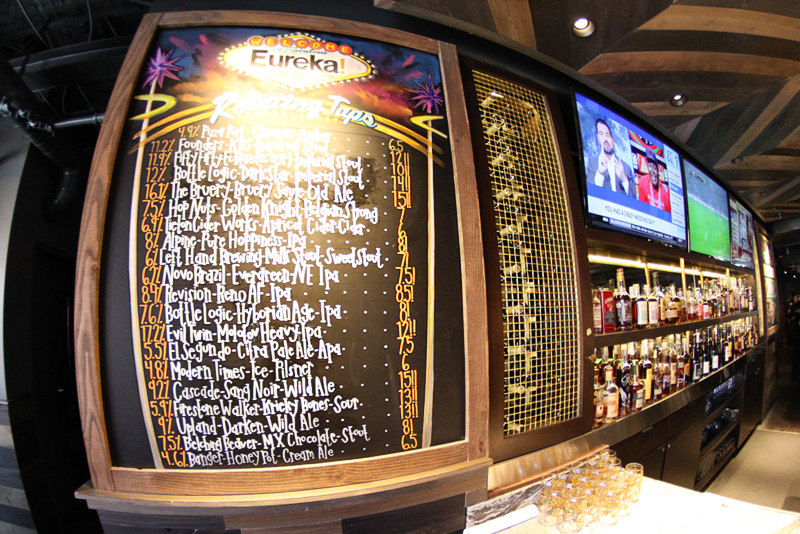 WELCOME
Eureka!
Rotating Taps
4.9% Pizza Port-
11.2% Founders-KBS-Imperial Stout
11.9% Fifty Fifty- Imperial Stout
12% Bottle Logic-Darkstar-Imperial Stout
16.1% The Bruery-Bruery Old Ale
7.5% Hop Nuts-Golden Knight-Belgian Strong
6.9% Cider Works-Apricot Cider-Cider
8% Alpine-Pure Hoppiness-Ipa
6% Left Hand Brewing-Milk Stout-Sweet Stout
Novo Brazil-Evergreen-NE Ipa
8.4% Revision-Reno AF-Ipa
7.6% Bottle Logic-Hyborian Age-Ipa
Evil Twin-Molotov Heavy-Ipa
5.5% El Segundo-Citra Pale Ale-Apa
4.8% Modern Times-Ice-Pilsner
9.2% Cascade-Sang Noir-Wild Ale
5.9% Firestone Walker-Krieky Bones-Sour
9% Upland-Darken-Wild Ale
7.5% Belching Beaver-MX Chocolate-Stout
4.6% Banger-Honey Pot-Cream Ale
YOU HAD A CRAZY WEDDING DAY?